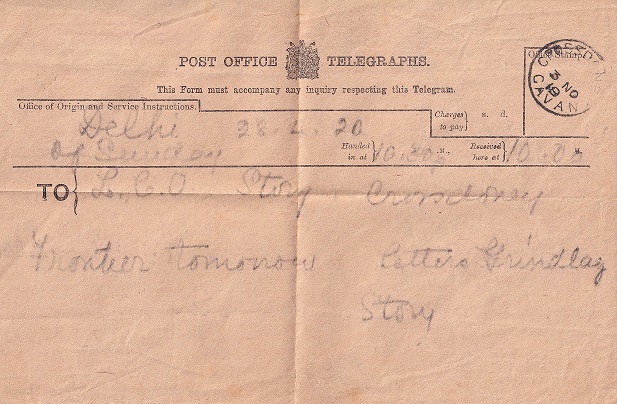 POST OFFICE TELEGRAPHS.
Office Stamp.
CROSSDONEY
3 NO 19
CAVAN
This Form must accompany any inquiry respecting this Telegram.
Office of Origin and Service Instructions.
Charges to pay } s. d.
Delhi 28.2.20
Of Sunday
Handed in at } 10.30 M., Received here at } 10.0 M.
TO { L.C.O Story Crossdoney
Frontier tomorrow Letters Grindlay
Story